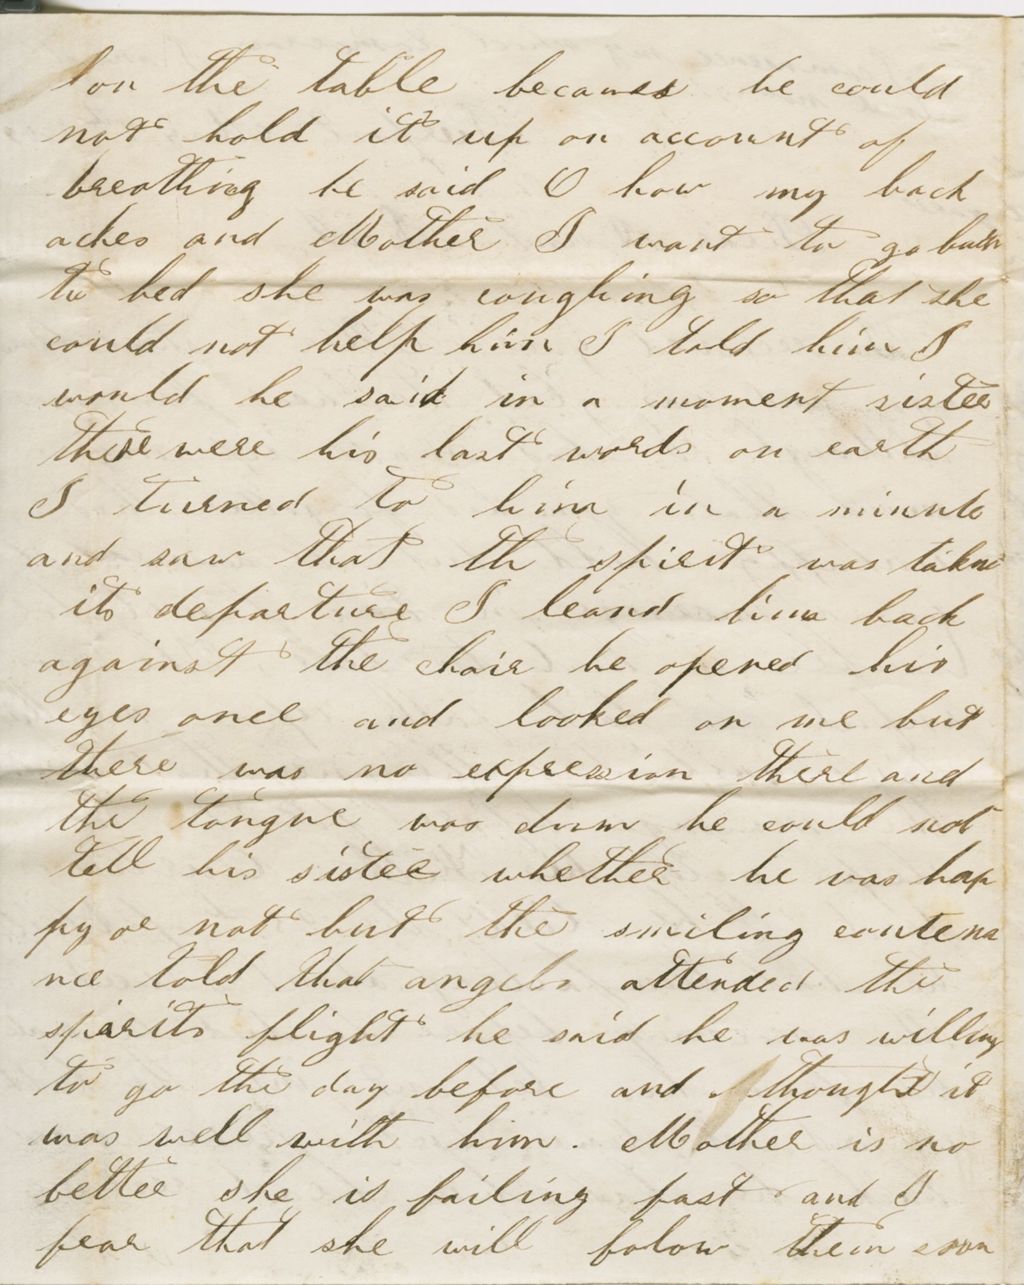 on the table because he could
not hold it up on account of
breathing he said O how my back
aches and Mother I want to go back
to bed she was coughing so that she
could not help him I told him I
would he said in a moment sister
these were his last words on earth
I turned to him in a minute
and saw that th spirit was takin
its departure I leand him back
against the chair he opened his
eyes once and looked on me but
there was no expression there and
the tongue was dum he could not
tell his sister whether he was hap
py or not but the smiling contena
nce told that angels attended the
spirits flight he said he was willing
to go the day before and thought it
was well with him. Mother is no
better she is failing fast and I
fear that she will folow them soon